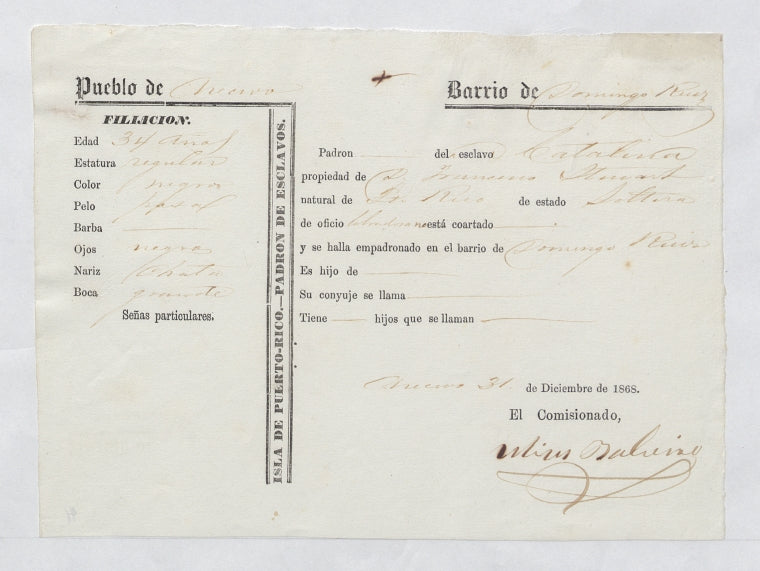 Pueblo de Arecivo
Barrio de Domingo Ruiz
FILIACION.
Edad 34 años
Estatura regular
Color negro
Pelo pasas
Barba
Ojos negros
Nariz Chata
Boca grande
Señas particulares.
ISLA DE PUERTO-RICO.—PADRON DE ESCLAVOS.
Padron del esclavo Catalina
propiedad de D. Francisco Stuart
natural de Pto. Rico de estado Soltera
de oficio labradora no está coartado
y se halla empadronado en el barrio de Domingo Ruiz
Es hijo de
Su conyuje se llama
Tiene hijos que se llaman
Arecivo 31 de Diciembre de 1868.
El Comisionado,